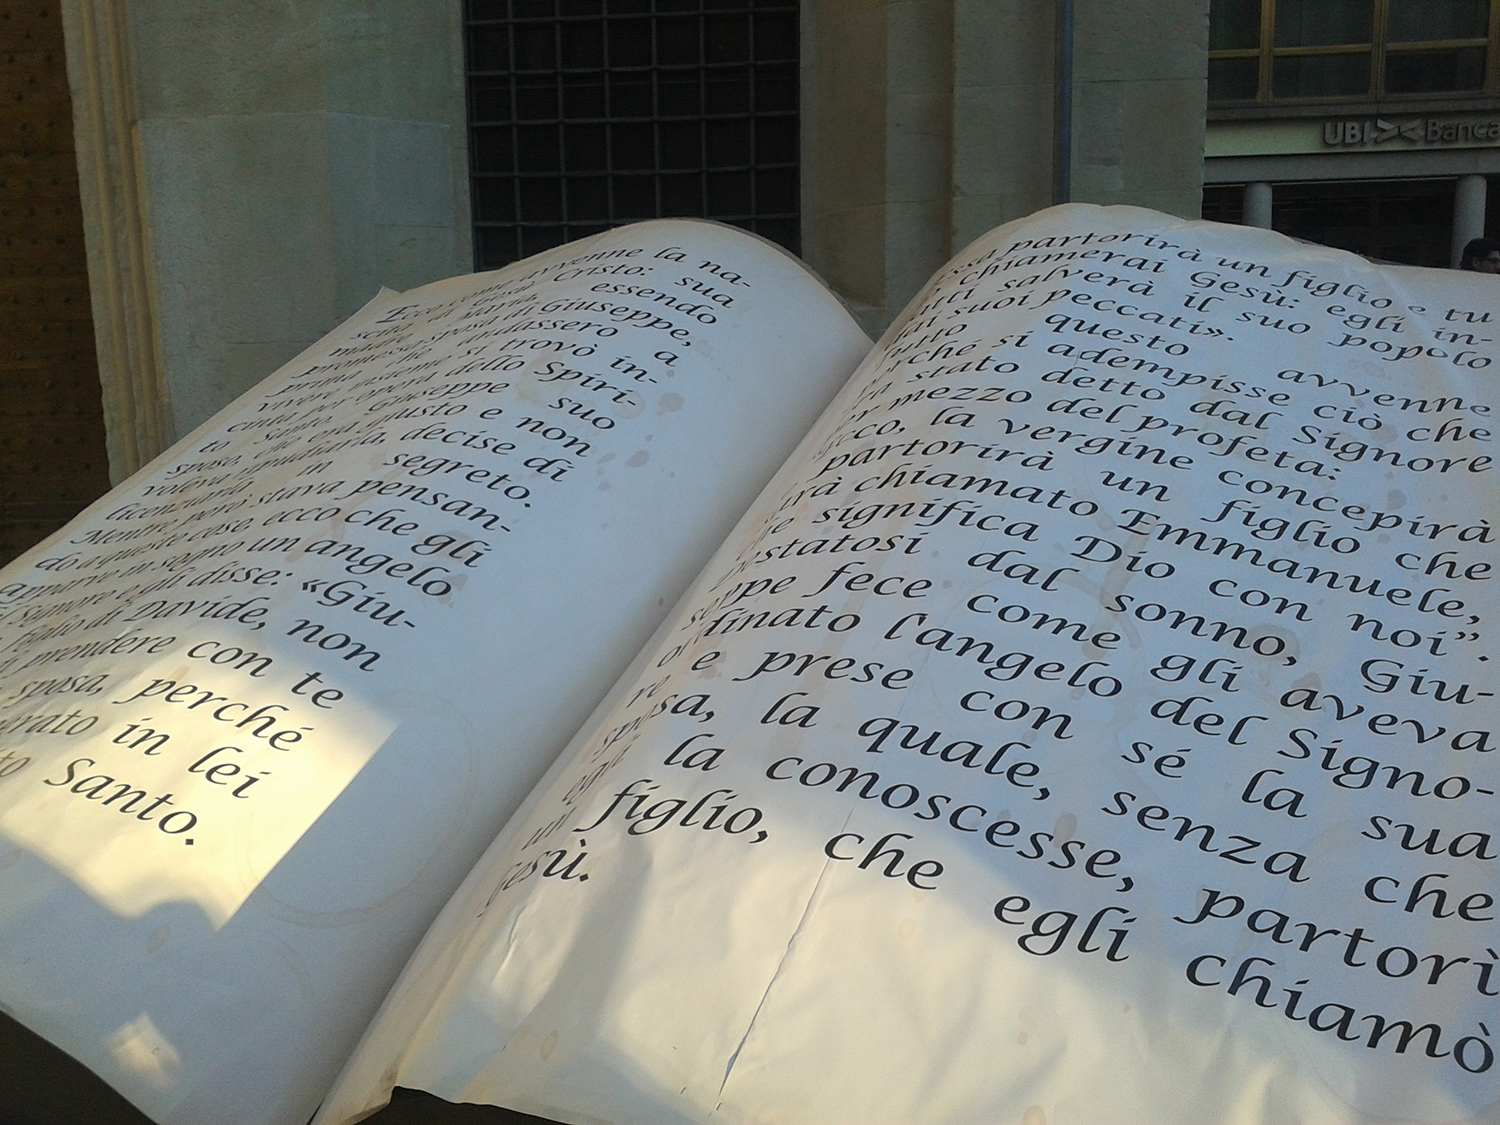 Ecco come avvenne la na-
scita di Gesù Cristo: sua
madre Maria, essendo
promessa sposa di Giuseppe,
prima che andassero a
vivere insieme si trovò in-
cinta per opera dello Spiri-
to Santo. Giuseppe suo
sposo, che era giusto e non
voleva ripudiarla, decise di
licenziarla in segreto.
Mentre però stava pensan-
do a queste cose, ecco che gli
apparve in sogno un angelo
Signore e gli disse: «Giu-
figlio di Davide, non
prendere con te
sposa, perché
in lei
Santo.
essa partorirà un figlio e tu
chiamerai Gesù: egli in-
fatti salverà il suo popolo
dai suoi peccati».
Tutto questo avvenne
perché si adempisse ciò che
era stato detto dal Signore
per mezzo del profeta:
Ecco, la vergine concepirà
partorirà un figlio che
sarà chiamato Emmanuele,
che significa Dio con noi”.
Destatosi dal sonno, Giu-
seppe fece come gli aveva
ordinato l'angelo del Signo-
re e prese con sé la sua
sposa, la quale, senza che
egli la conoscesse, partorì
un figlio, che egli chiamò
Gesù.
UBI Banca